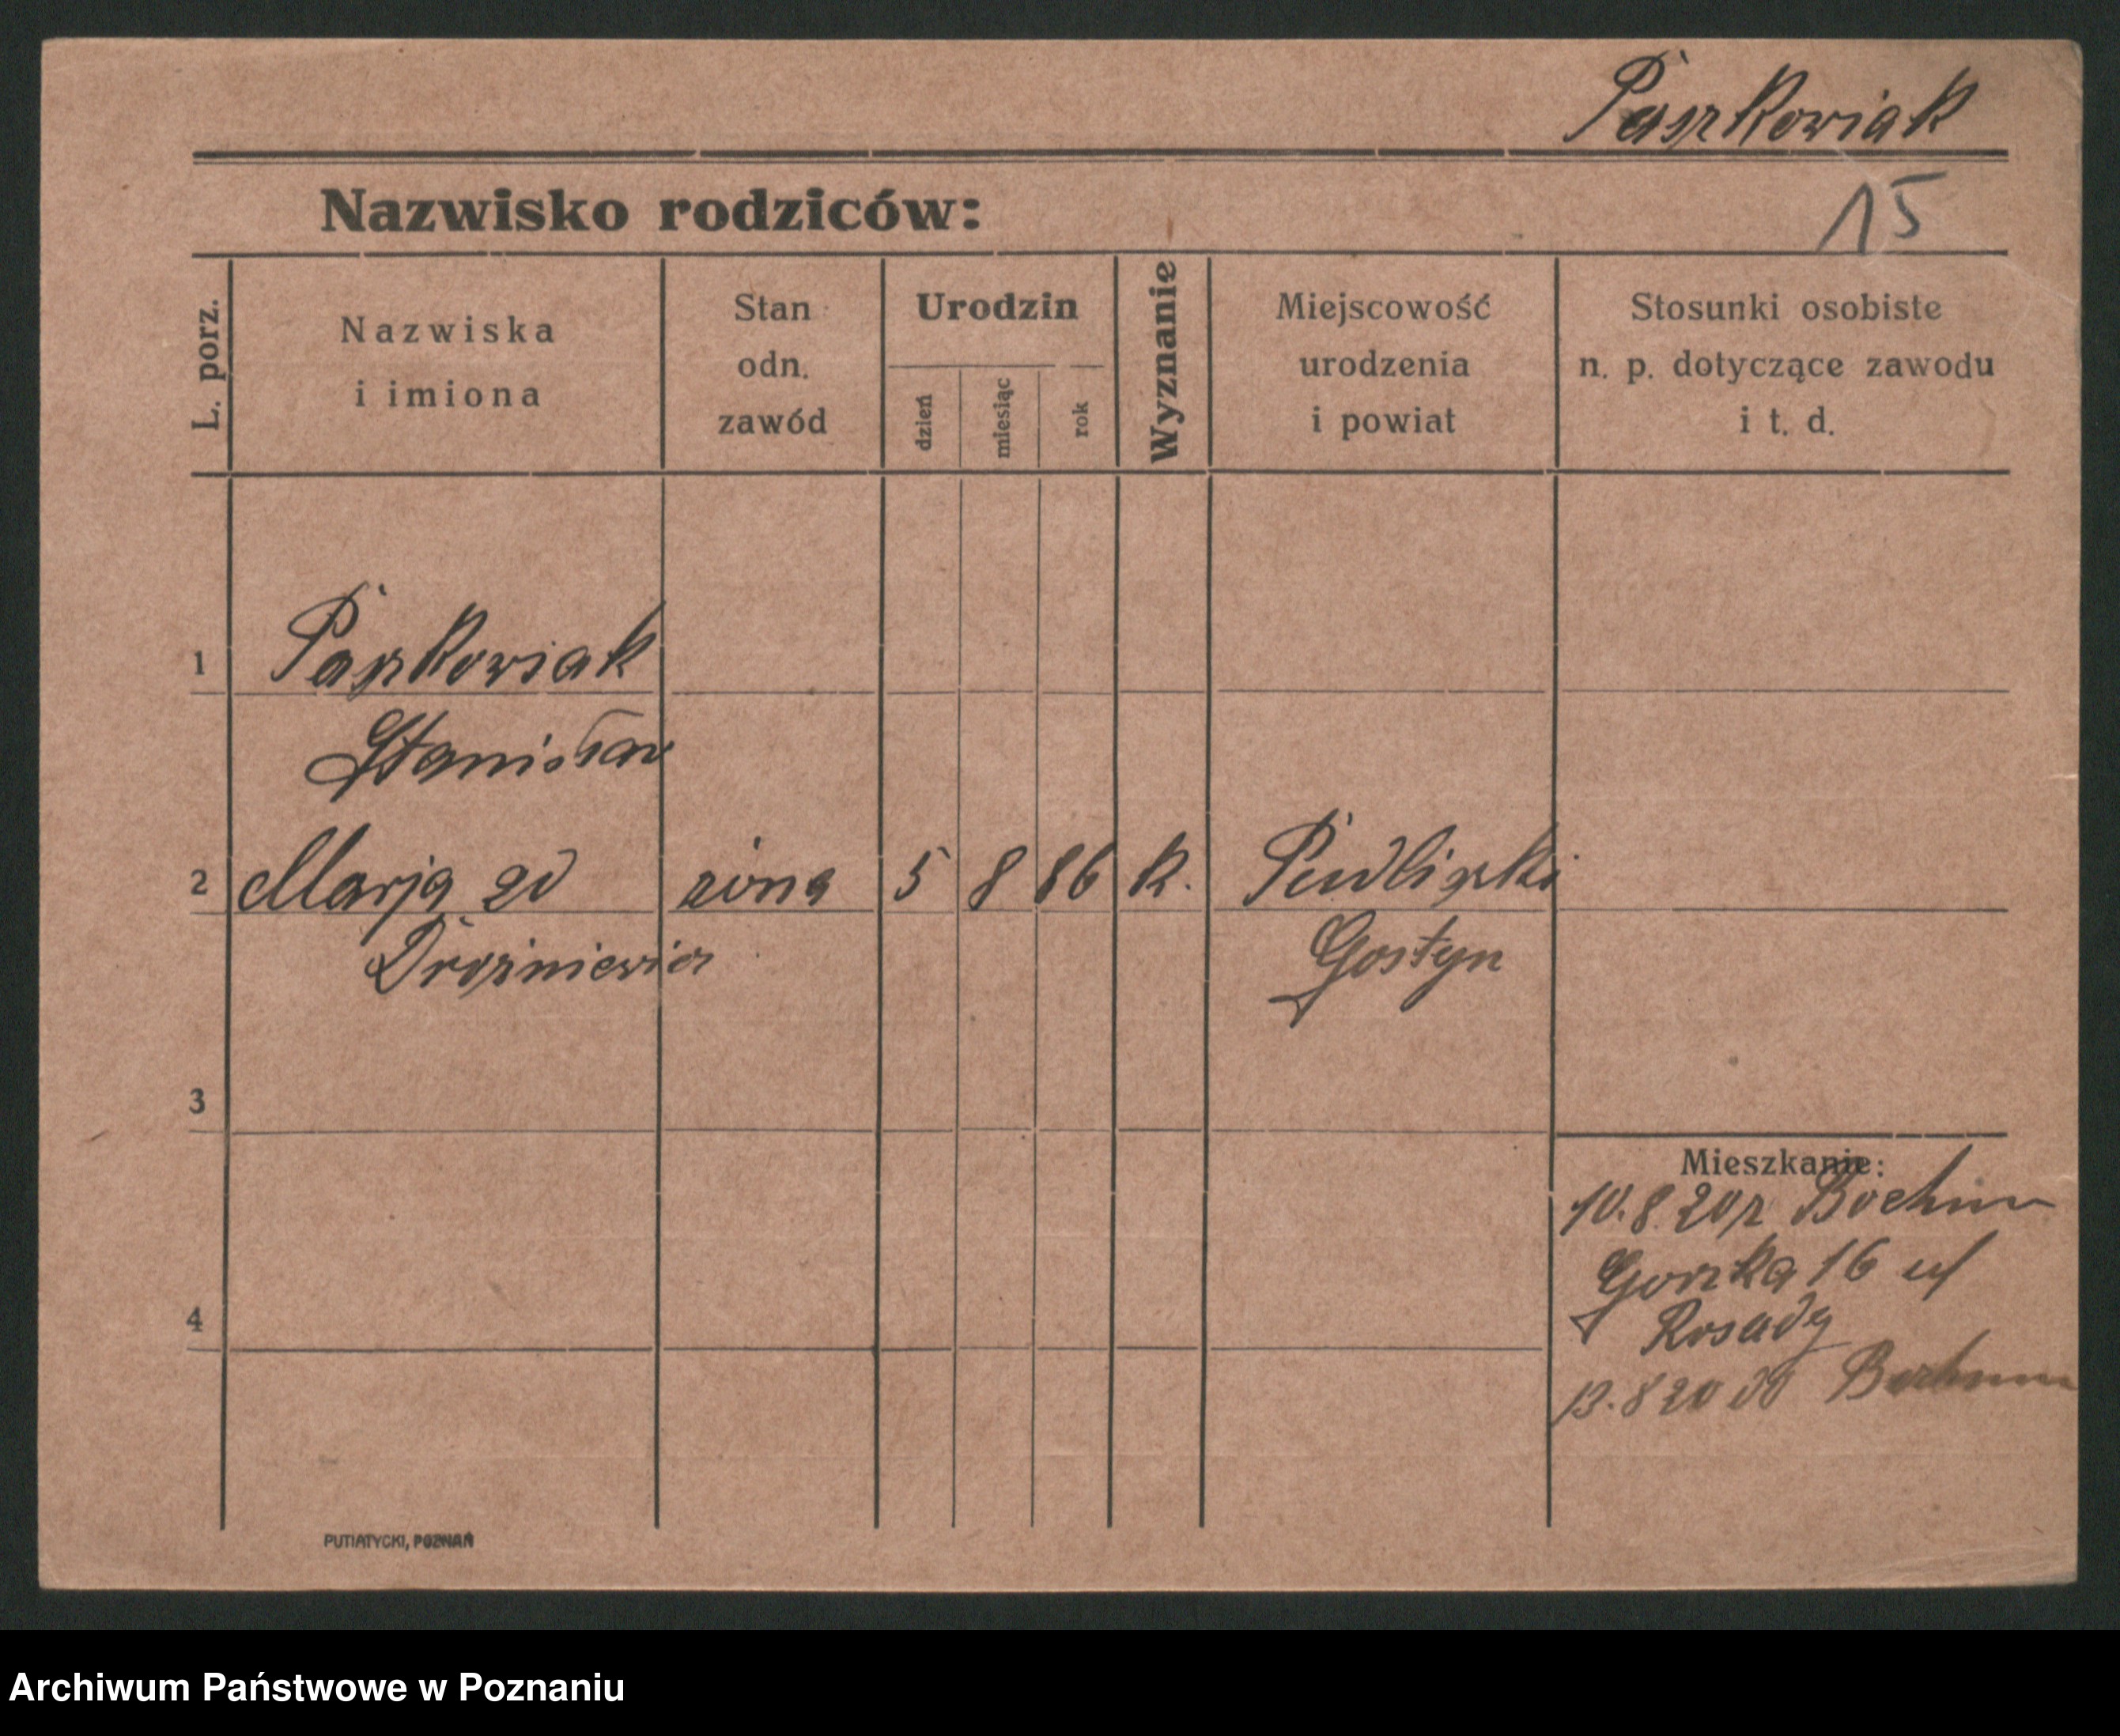 Paszkowiak
Nazwisko rodziców:
15
L. porz.
Nazwiska
i imiona
Stan
odn.
zawód
Urodzin
dzień
miesiąc
rok
Wyznanie
Miejscowość
urodzenia
i powiat
Stosunki osobiste
n. p. dotyczące zawodu
i t. d.
1 Paszkowiak
Stanisław
2 Marja zd żona 5 8 86 k. Pudliszki
Gostyn
3
4
Mieszkanie:
10.8.20 z Bochum
16 ul
Rosady
13.8 20 do Bochum
PUTIATYCKI, POZNAŃ
Archiwum Państwowe w Poznaniu